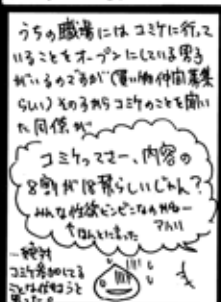 うちの職場にはコミケに行って
いることをオープンにしている男子
がいるのですが(買い物仲間募集
らしい)その子からコミケのことを聞い
た同僚が
コミケってさー、内容の
8割が18禁らしいじゃん?
みんな性欲ビンビンなのかねー
アハハ
とほんとに言った
一絶対
コミケ参加してる
ことは伝えようと
思った。